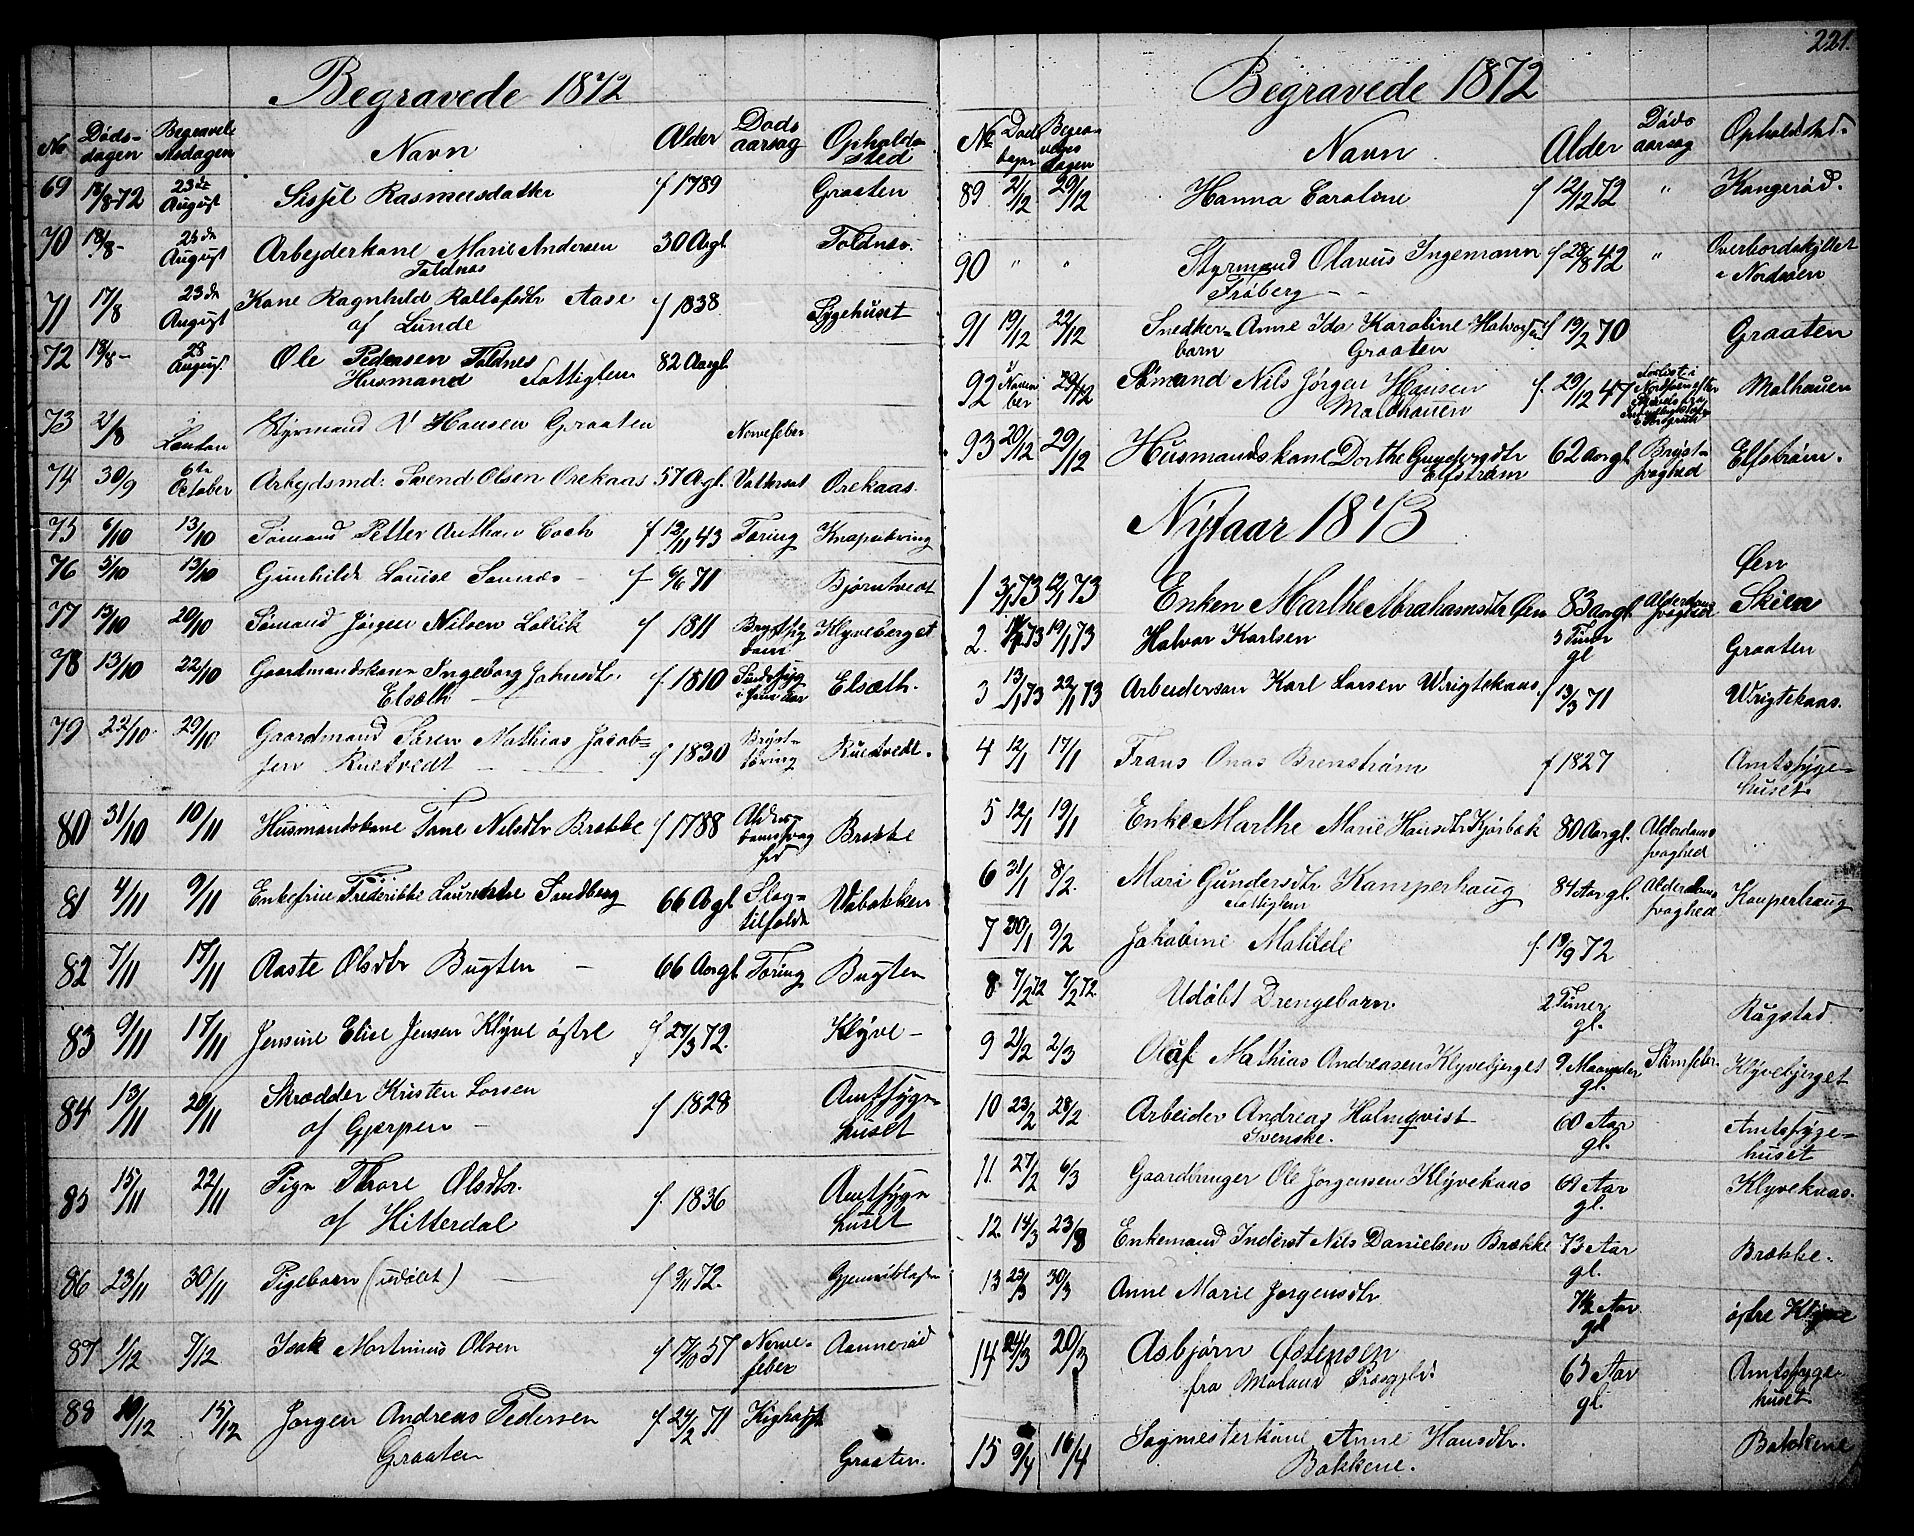 221.
Begravede 1872
No Døds-dagen Begravelsesdagen Navn Alder Døds aarsag Opholdssted
69 18/8-72 23de August Sissil Rasmusdatter f 1789 Graaten
70 18/8- 25de August Arbejderkone Marie Andersen 30 Aargl. Foldnes.
Foldnes
71 17/8 23de August Kone Ragnhild Rollefsdtr Aase f 1838 Sygehuset
af Lunde
72 18/8- 28 August Ole Pedersen Foldnes 82 Aargl
Husmand Fattiglem
73 21/8 i London Styrmand N Hansen Graaten Nervefeber
74 30/9 6te October Arbejdsmd: Svend Olsen Orekaas 57 Aargl. Vattersot Orekaas.
75 6/10 13/10 Sømand Petter Anthon Coch f 12/11 43 Tæring
76 5/10 13/10 Gunhilde Louise f 6/6 71 Bjørntvedt
77 13/10 20/10 Sømand Jørgen Nilsen Løllik f 1811 Klyveberget
78 13/10 22/10 Gaardmandskone Ingeborg Johnsdtr. f 1810 Elsæth.
Elsæth
79 22/10 29/10 Gaardmand Søren Mathias Jacob-
sen Ruetvedt f 1830 Bryst-tæring Ruetvedt.
80 31/10 10/11 Husmandskone Tone Nilsdtr Brække f 1788 Alderdomssvaghed Brække
81 4/11 9/11 Enkefrue Frederikke Sandberg 66 Aargl Slagtilfælde Vabakken
82 7/11 15/11 Aaste Olsdtr Bugten 66 Aargl Tæring Bugten
83 9/11 17/11 Jensine Elise Jensen Klyve østre f 27/3 72. Klyve
84 13/11 20/11 Skrædder Kristen Larsen f 1828 Amtsygehuset
af Gjerpen
85 15/11 22/11 Pige Thore Olsdtr. f. 1836 Amtsygehuset
af Hitterdal
86 23/11 30/11 Pigebarn (udøbt) f 9/11 72.
87 1/12 7/12 Isak Martinius Olsen f 17/10 57 Nervefeber Aannerød
88 10/12 15/12 Jørgen Andreas Pedersen f 24/2 71 Kighoste Graaten.
Graaten
Begravede 1872
No Døds dagen Begravelses dagen Navn Alder Døds aarsag Opholdsted.
89 21/12 29/12 Hanna Caroline f 12/12 72 " Kongerød.
90 " " Styrmand Olavus Ingemann f 28/8 42 " Overbordskyllet
Frøberg i Nordsøen
91 19/12 22/12 Snedker- Anne Ida Karoline Halvorsen f 19/2 70 Graaten
barn Graaten
92 i November 29/12 Sømand Nils Jørgen Hansen f. 29/12 47 Forlist i Nordsøen efter Malhauen
Maldhauen
93 20/12 29/12 Husmandskone Dorthe Gundersdtr 62 Aargl Brystsvaghed Elfstrøm.
Elfstrøm
Nytaar 1873
1 3/1 73 12/1 73 Enken Marthe Abrahamsdtr Øen 83 Aargl Alderdomssvaghed Øen Skien
2. 73 19/1 73 Halvor Karlsen 3 Timer gl Graaten
3 13/1 73 22/1 73 Arbeiderson Karl Larsen Wrigtekaas f 13/3 71 Wrigtekaas.
4 12/1 17/1 Frans Onas Brenstrøm f 1827 Amtssygehuset
5 12/1 19/1 Enke Marthe Marie Hansdtr Kjørbæk 80 Aargl. Alderdomssvaghed "
6 31/1 8/2. Mari Gundersdtr Kamperhaug 84 Aargl. Alderdomssvaghed Kamperhaug
Fattiglem
7 30/1 9/2 Jakobine Matilde f. 19/9 72
8 7/2 72 7/2 72. Udøbt Drengebarn. 2 Timer gl. Rugstad.
9 21/2 2/3 Olaf Mathias Andreasen Klyvebjerget 9 Maaneder gl. Slimfeber. Klyvebjerget
10 23/2 28/2 Arbeider Andreas Holmqvist 60 Aar gl. Amtssygehuset
Svenske.
11. 27/2 6/3 Gaardbruger Ole Jørgensen Klyvekaas 69 Aar gl. Klyvekaas.
12. 14/3 23/8 Enkemand Inderst Nils Danielsen Brække 73 Aar gl. Brække.
13 23/3 30/3 Anne Marie Jørgensdtr 74 Aar gl østre Klyve
14 24/3 20/3 Asbjørn Østensen 65 Aar gl. Amtssygehuset
fra Præstgjld.
15 9/4 16/4 Sagmesterkone Anne Hansdtr. Bakkene
Bakkene.